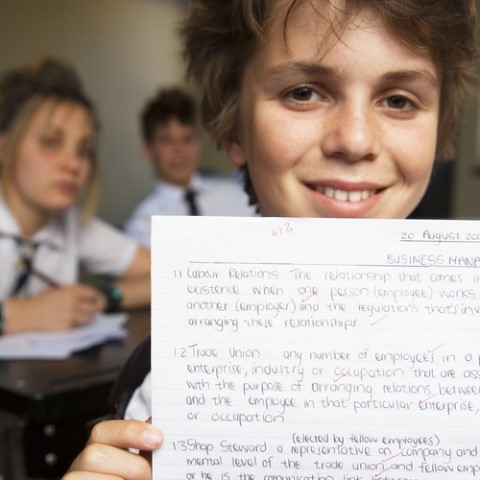 67%
20 August 200
BUSINESS MANA
1.1 Labour Relations The relationship that comes in
existence when one person (employee) works
another (employer) and the regulations that's inv
arranging these relationships
1.2 Trade Union any number of employees in a p
enterprise, industry or occupation that are ass
with the purpose of arranging relations between
and the employee in that particular enterprise,
or occupation
(elected by fellow employees)
1.3 Shop Steward a representative on company and
mental level of the trade union and fellow emp
or he is the comunication link between